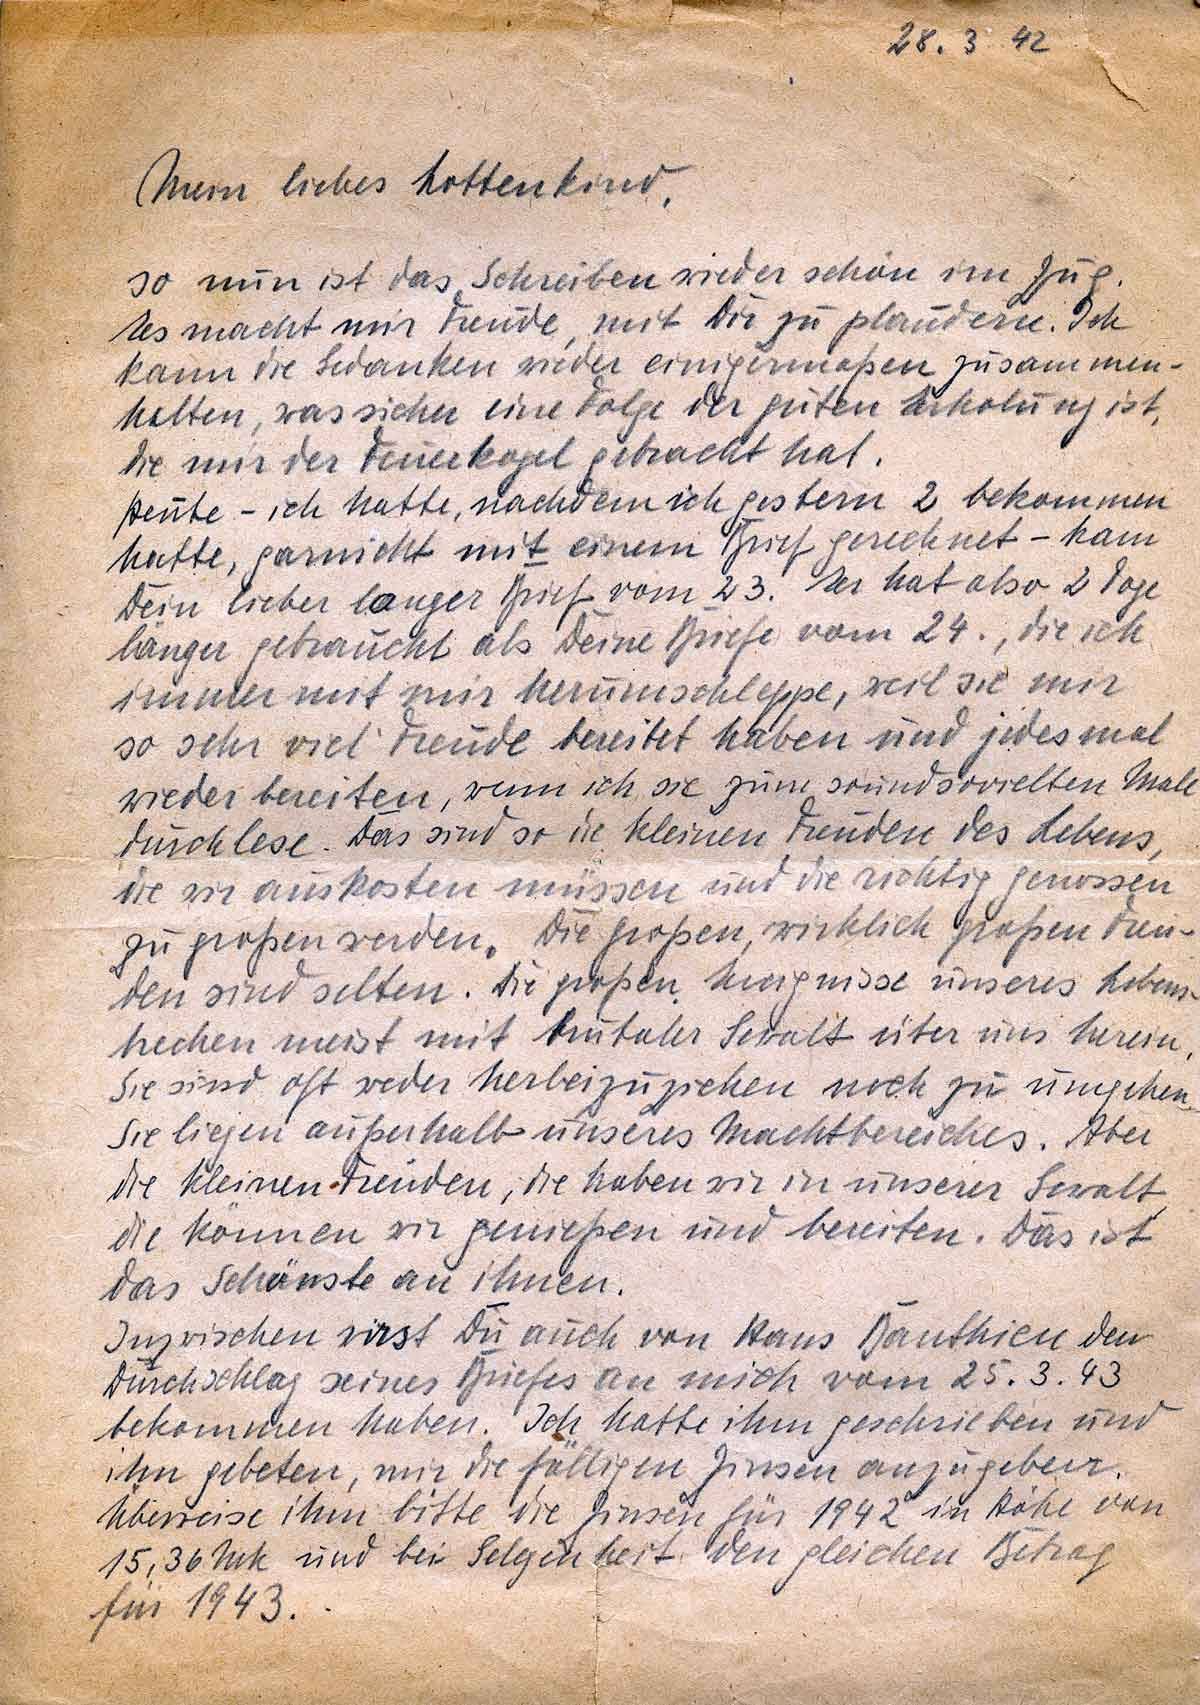 28. 3 42
Mein liebes Lottenkind,
so nun ist das Schreiben wieder schön im Zug.
Es macht mir Freude, mit Dir zu plaudern. Ich
kann die Gedanken wieder einigermaßen zusammen-
halten, was sicher eine Folge der guten Erholung ist,
die mir der Feuerkogel gebracht hat.
Heute – ich hatte, nachdem ich gestern 2 bekommen
hatte, garnicht mit einem Brief gerechnet – kam
Dein lieber langer Brief vom 23. Er hat also 2 Tage
länger gebraucht als Deine Briefe vom 24., die ich
immer mit mir herumschleppe, weil sie mir
so sehr viel Freude bereitet haben und jedesmal
wieder bereiten, wenn ich sie zum soundsovielten Male
durchlese. Das sind so die kleinen Freuden des Lebens,
die wir auskosten müssen und die richtig genossen
zu großen werden. Die großen, wirklich großen Freu-
den sind selten. Die großen Ereignisse unseres Lebens
brechen meist mit brutaler Gewalt über uns herein.
Sie sind oft weder herbeizuziehen noch zu umgehen.
Sie liegen außerhalb unseres Machtbereiches. Aber
die kleinen Freuden, die haben wir in unserer Gewalt,
die können wir genießen und bereiten. Das ist
das Schönste an ihnen.
Inzwischen wirst Du auch von Hans Banthien den
Durchschlag seines Briefes an mich vom 25. 3. 43
bekommen haben. Ich hatte ihm geschrieben und
ihn gebeten, mir die fälligen Zinsen anzugeben.
Überweise ihm bitte die Zinsen für 1942 in Höhe von
15,36 Mk und bei Gelgenheit den gleichen Betrag
für 1943.